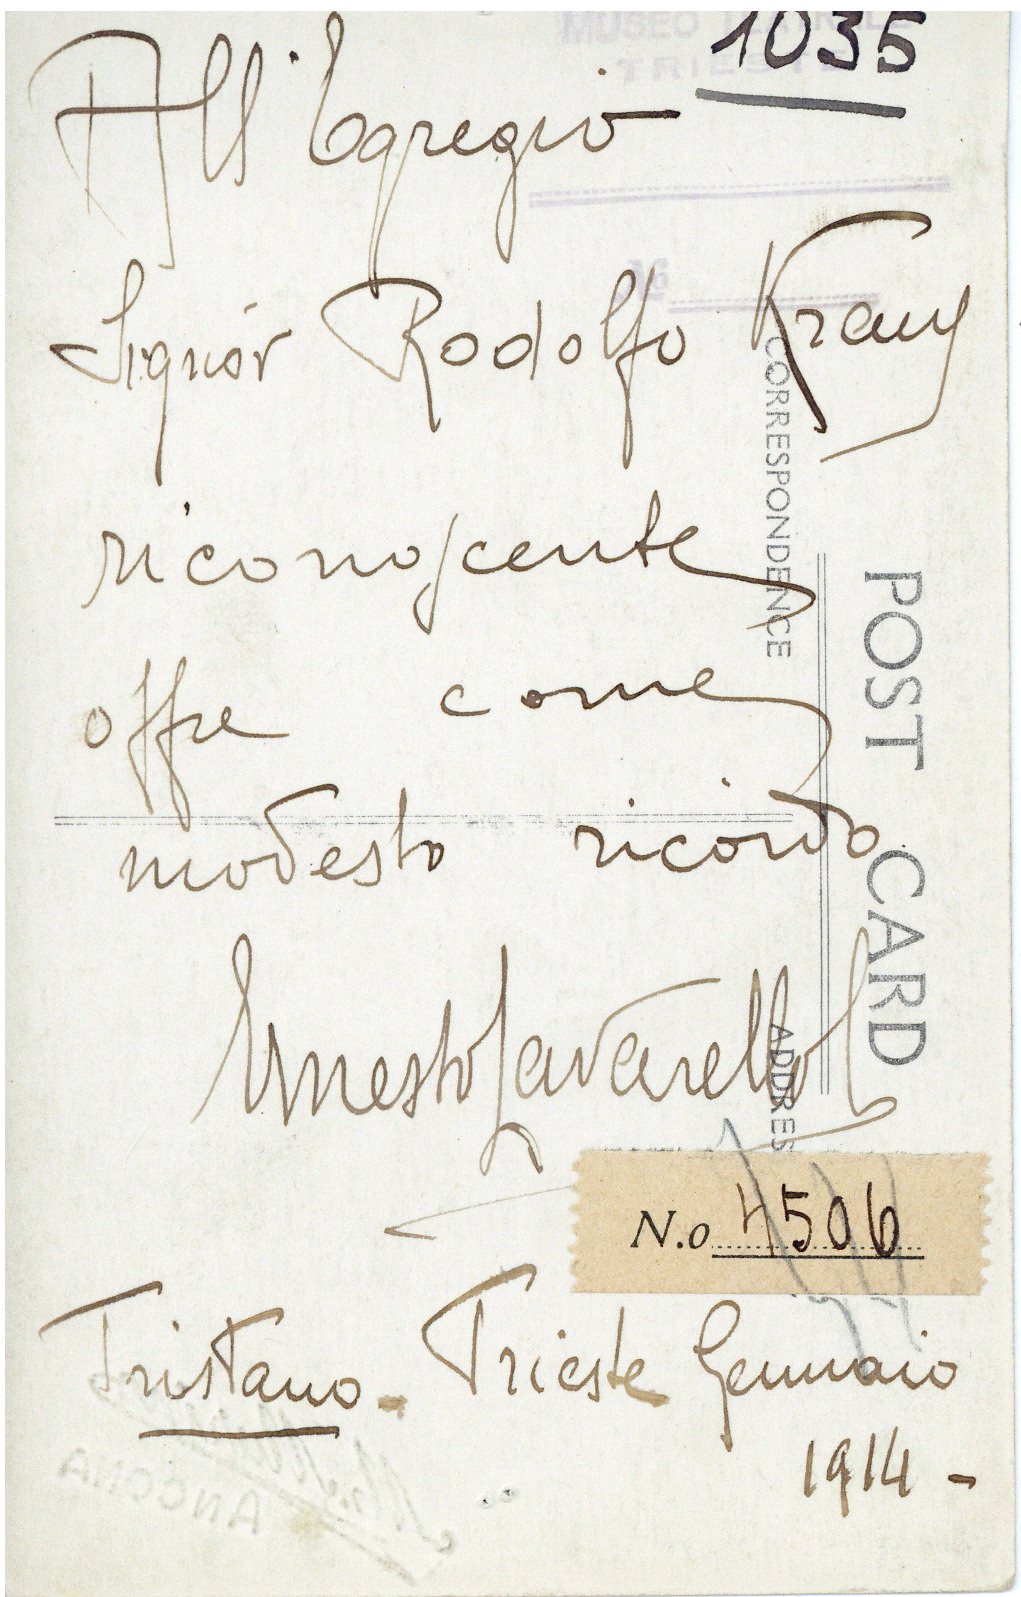 MUSEO TEATRALE
TRIESTE
1035
All'Egregio
Signor Rodolfo Kraus
riconoscente
offre come
modesto ricordo
Ernesto Lavarello
N.o 4506
Tristano - Trieste Gennaio
1914 -
CORRESPONDENCE
POST CARD
ADDRES
ANCONA